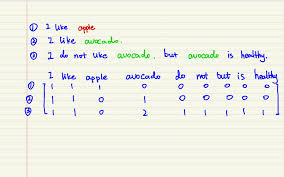 ① I like apple
② I like avocado.
③ I do not like avocado, but avocado is healthy.
I like apple avocado do not but is healthy
① 1 1 1 0 0 0 0 0 0
② 1 1 0 1 0 0 0 0 0
③ 1 1 0 2 1 1 1 1 1